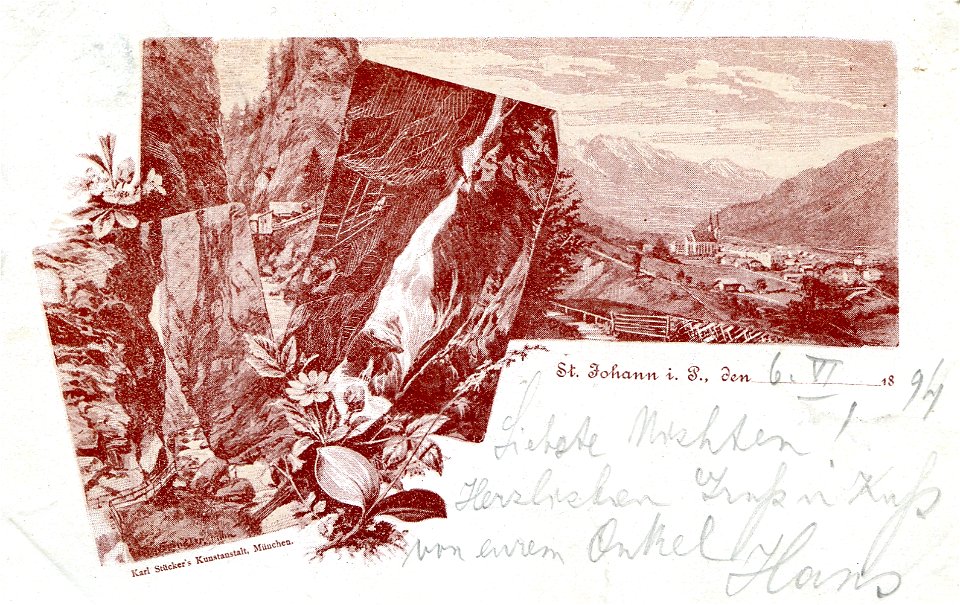 St. Johann i. P., den 6. VI 1894
Liebste Nichten!
Herzlichen Gruß u Kuß
von eurem Onkel
Hans
Karl Stücker's Kunstanstalt, München.